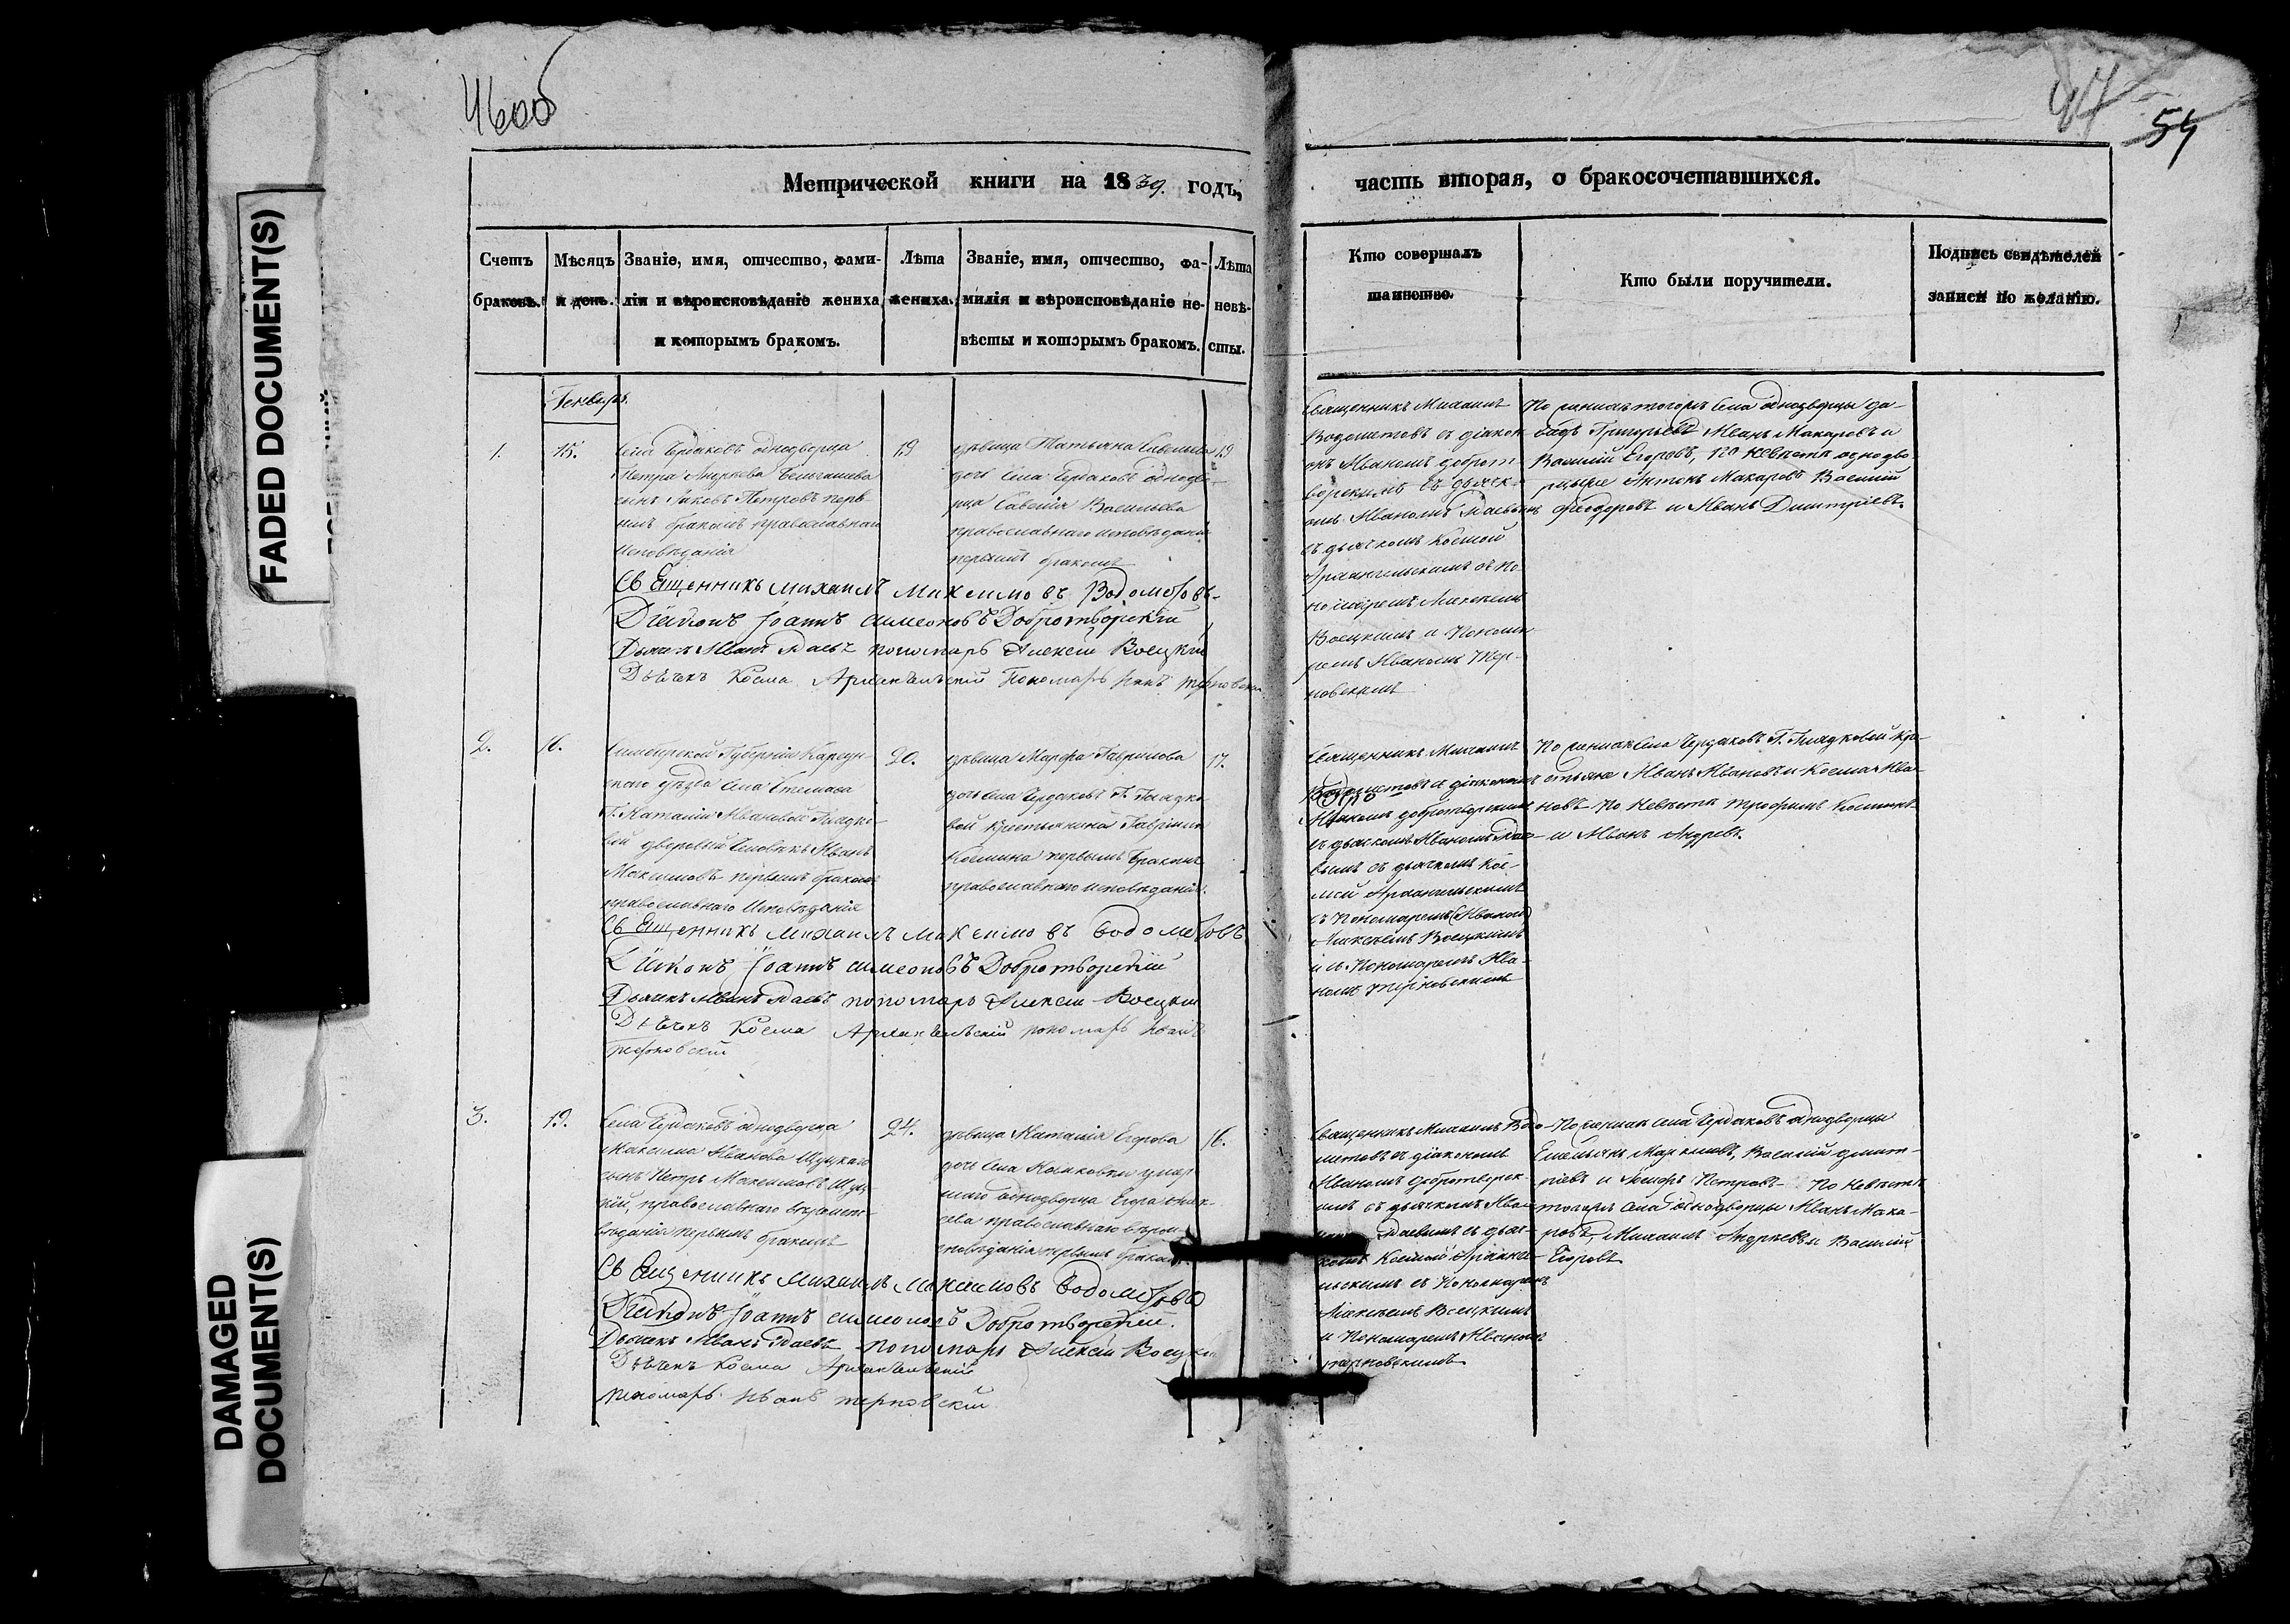 46об
47
54
FADED DOCUMENT(S)
DAMAGED
DOCUMENT(S)
Метрической книги на 1839. годъ,
часть вторая, о бракосочетавшихся.
Счетъ
браковъ.
Мѣсяцъ
и день.
Званіе, имя, отчество, фами-
лія и вѣроисповѣданіе жениха
и которымъ бракомъ.
Лѣта
жениха.
Званіе, имя, отчество, фа-
милія и вѣроисповѣданіе не-
вѣсты и которымъ бракомъ.
Лѣта
невѣ-
сты.
Кто совершалъ
таинство.
Кто были поручители.
Подпись свидѣтелей
записи по желанію.
Генварь.
1.
15.
Села Чердаковъ однодворца
Петра Андреева
сынъ Іаковъ Петровъ перв
мъ бракомъ православнаго
исповѣданія
19
дѣвица Татьяна Савельева
дочь села Чердаковъ однодво-
рца Савелія Васильева
православнаго исповѣданія
первымъ бракомъ
19
Священникъ Михаилъ
Водометовъ съ діакон
омъ Иваномъ доброт-
ворскимъ съ дьячк-
омъ Иваномъ
съ дьячкомъ Космой
Архангельскимъ съ по-
номаремъ Алексѣемъ
Воецкимъ и Понома
ремъ Иваномъ Тер-
новскимъ
По женихѣ тогожъ села однодворцы да-
видъ Григорьевъ Иванъ Макаровъ и
Василій Егоровъ, по невѣстѣ однодво-
рцыже Антонъ Макаровъ Василій
Феодоровъ и Иванъ Димитріевъ.
Священникъ Михаилъ Максимовъ Водометовъ
Діаконъ Іоаннъ Симеоновъ Добротворскій
Дьячекъ Иванъ пономарь Алексѣй Воецкій
Дьячекъ Косма Архангельскій Пономарь Иванъ Терновскій
2.
16.
Симбирской Губерніи Карсун-
скаго уѣзда села
Г. Наталіи Ивановой Гладко-
вой дворовый человѣкъ Иванъ
Максимовъ первымъ бракомъ
православнаго исповѣданія
20.
дѣвица Марфа Гаврилова
дочь села Чердаковъ Г. Гладко
вой крестьянина Гавріила
Космина первымъ бракомъ
православнаго исповѣданія.
17.
Священникъ Михаилъ
Водометовъ съ діакономъ
Иваномъ добротворскимъ
съ дьячкомъ Иваномъ
вымъ съ дьячкомъ Кос-
мой Архангельскимъ
съ Пономаремъ (Иваном)
Алексѣемъ Воецкимъ
и съ Пономаремъ Ива-
номъ Терновскимъ
По женихѣ села Чердаковъ Г. Гладковой кре-
стьяне Иванъ Ивановъ и Косма Ива-
новъ по невѣстѣ Трофимъ
и Иванъ Андреевъ.
Священникъ Михаилъ Максимовъ Водометовъ
Діаконъ Іоаннъ Симеоновъ Добротворскій
Дьячекъ Иванъ пономарь Алексѣй Воецкій
Дьячекъ Косма Архангельскій пономарь Иванъ
Терновскій
3.
19.
Села Чердаковъ однодворца
Максима Иванова Щуцкаго
сынъ Петръ Максимовъ Щуц
кій, православнаго вѣроиспо-
вѣданія первымъ бракомъ
24.
дѣвица Наталія Егорова
дочь села умер-
шаго однодворца Егора
православнаго вѣрои-
сповѣданія первымъ бракомъ.
16.
Священникъ Михаилъ Водо-
метовъ съ діакономъ
Иваномъ добротворск-
имъ съ дьячкомъ Ива
съ дьяч-
комъ Космой Арханге-
льскимъ съ Пономаремъ
Алексѣемъ Воецкимъ
и Пономаремъ Иваномъ
терновскимъ
По женихѣ села Чердаковъ однодворцы
Емельянъ Максимовъ, Василій Димит-
ріевъ и Петровъ - По невѣстѣ
тогожъ села однодворцы Иванъ Мака-
ровъ, Михаилъ Андреевъ и Василій
Егоровъ
Священникъ Михаилъ Максимовъ Водометовъ
Діаконъ Іоаннъ Симеоновъ Добротворскій.
Дьячекъ Иванъ пономарь Алексѣй Воецкій
Дьячекъ Косма Архангельскій
пономарь Иванъ терновскій